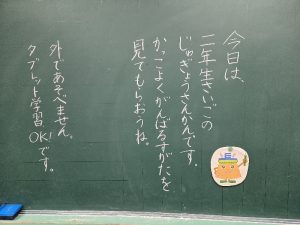 今日は、
二年生さいごの
じゅぎょうさんかんです。
かっこよくがんばるすがたを
見てもらおうね。
外であそべません。
タブレット学習OK!です。